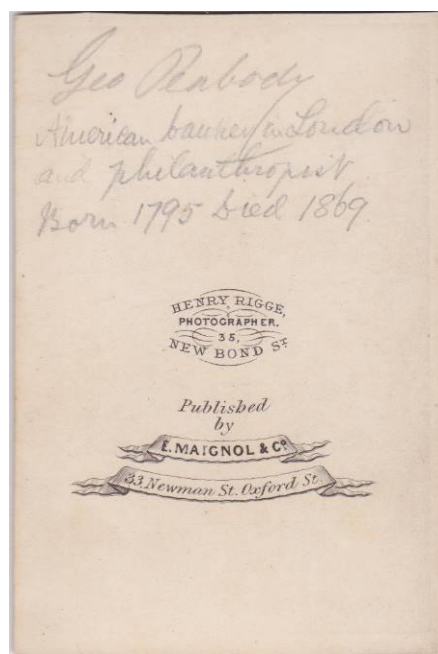 Geo Peabody
American banker in London
and philanthropist
Born 1795 Died 1869
HENRY RIGGE,
PHOTOGRAPHER.
35,
NEW BOND ST.
Published
by
E. MAIGNOL & Co.
33, Newman St. Oxford St.